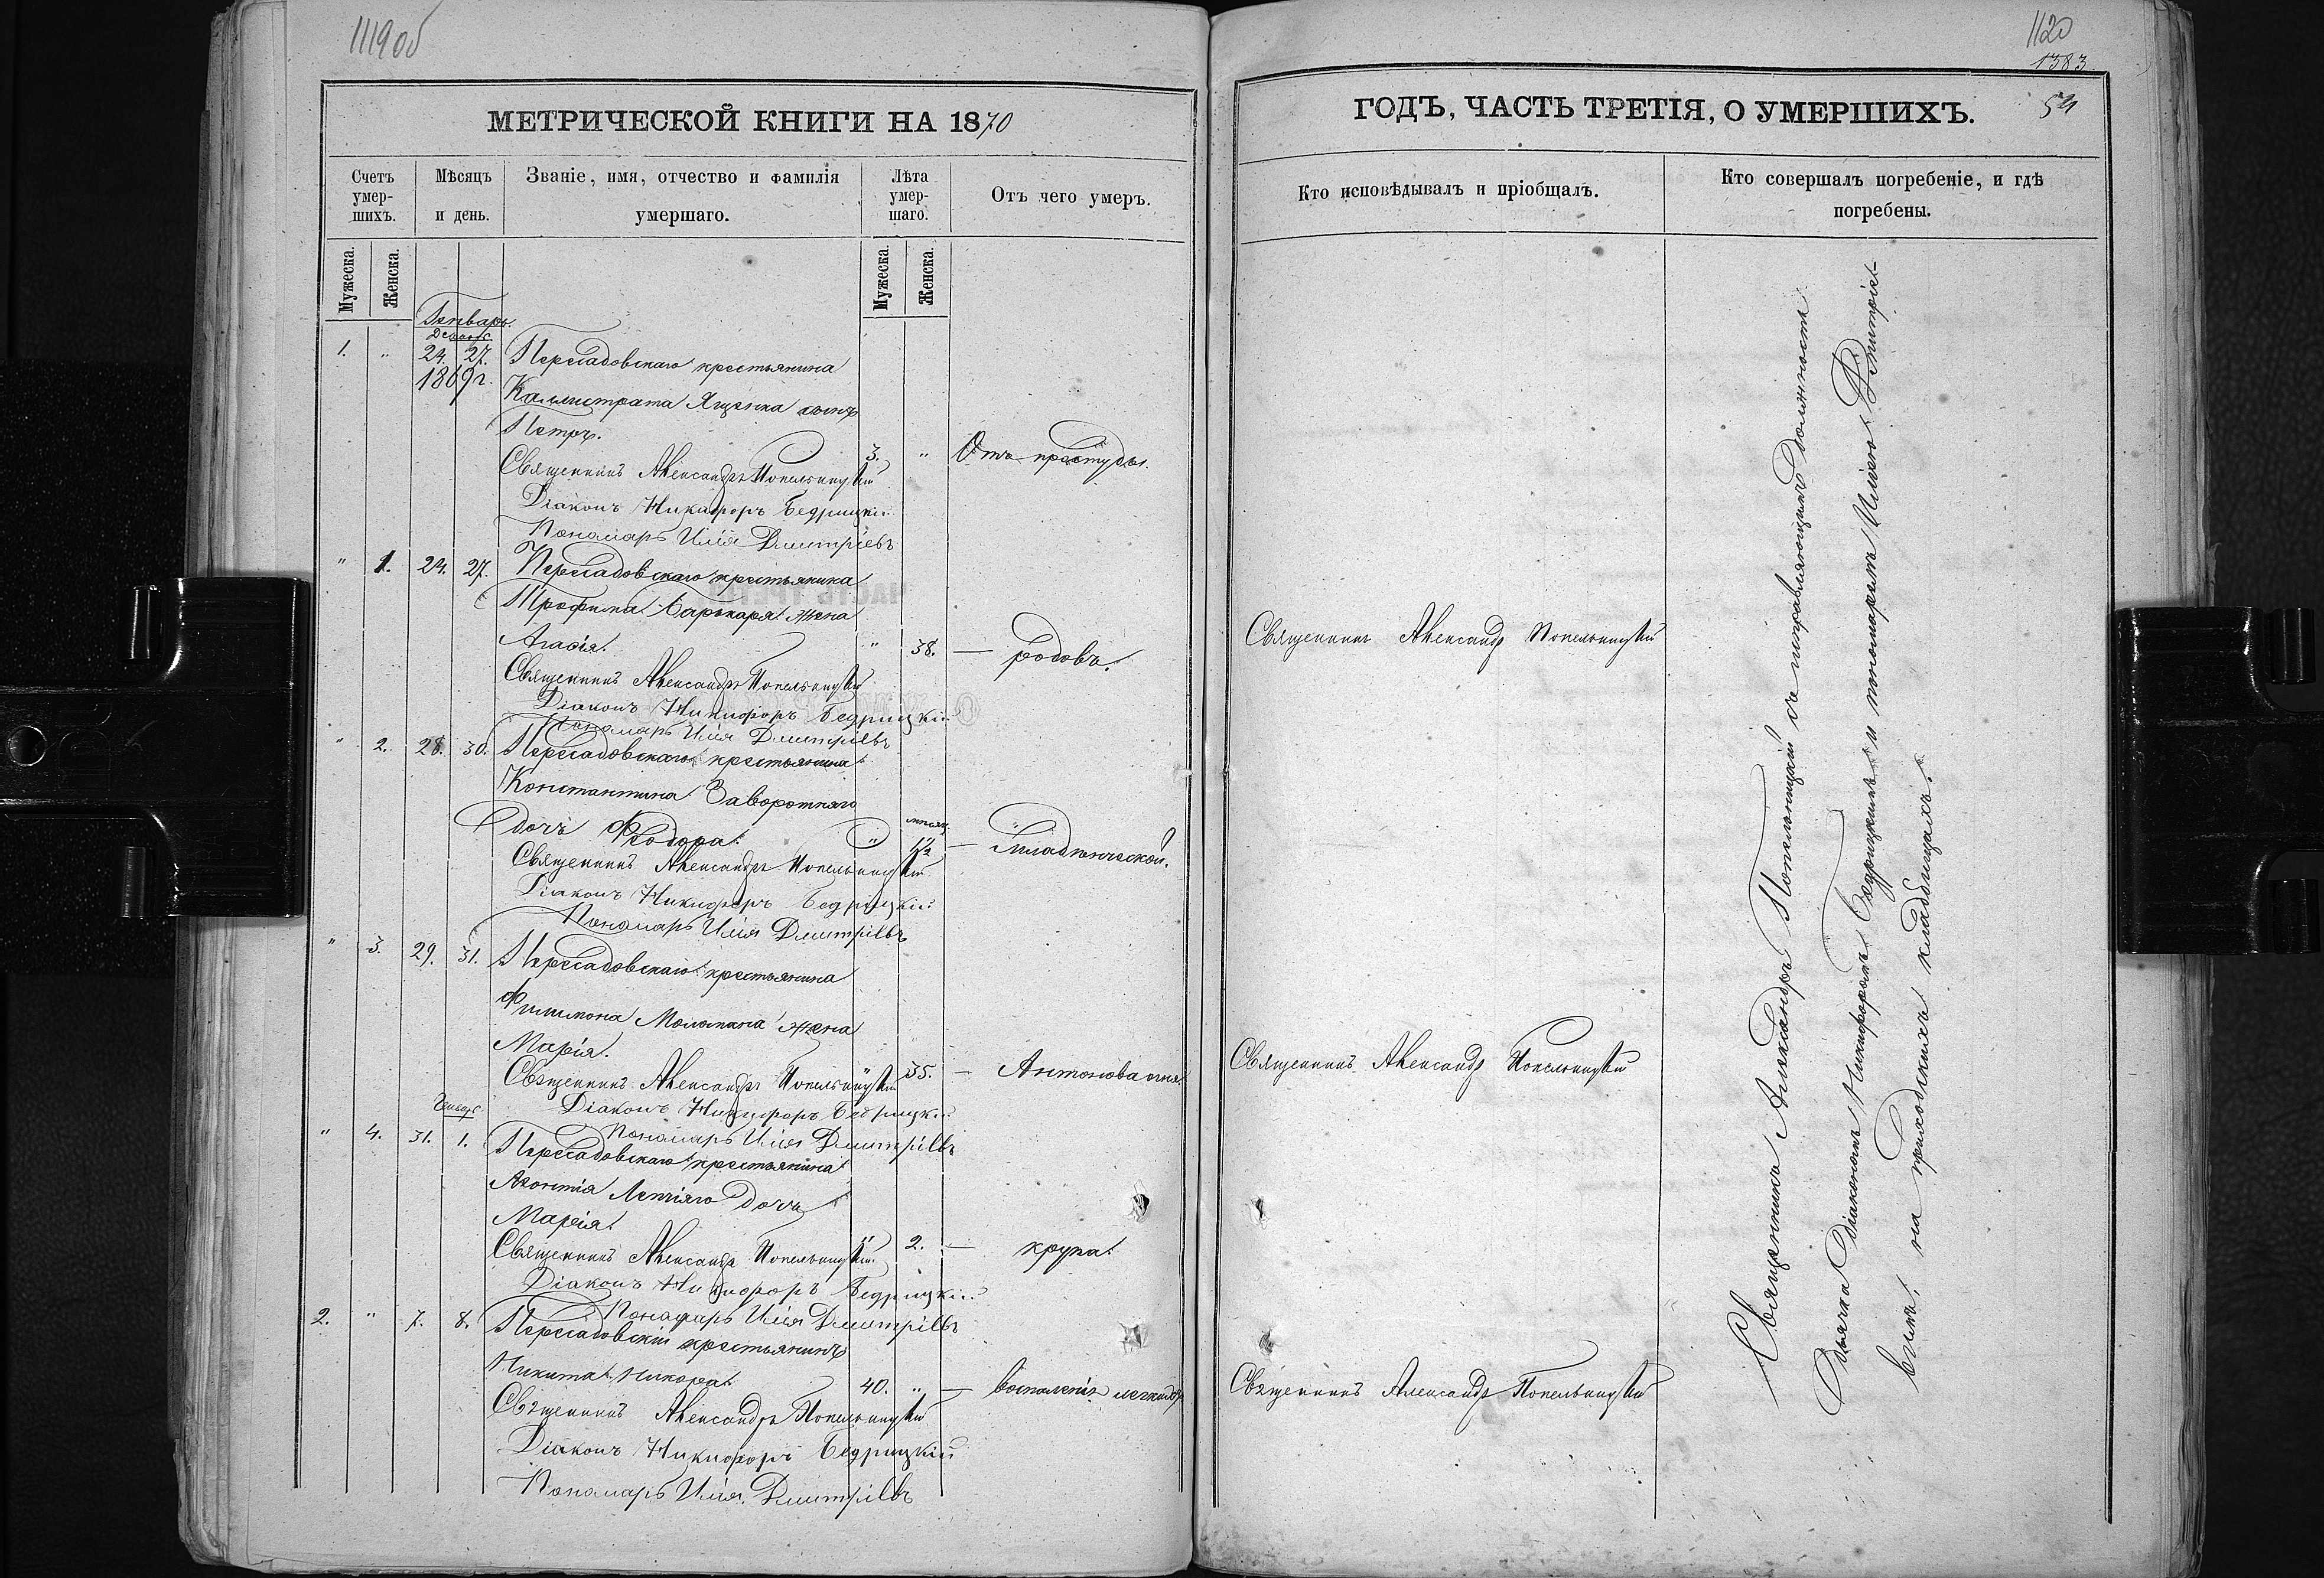 1119об
МЕТРИЧЕСКОЙ КНИГИ НА 1870
Счетъ умер-шихъ.
Мѣсяцъ и день.
Званіе, имя, отчество и фамилія умершаго.
Лѣта умер-шаго.
Отъ чего умеръ.
Мужеска.
Женска.
Мужеска.
Женска.
Генварь.
1. " 24. 27. Пересадовскаго крестьянина
1869 г.
Каллистрата Ященка сынъ
Петръ.
3. " Отъ простуды.
Священникъ Александръ Попельницкій
Діаконъ Никифоръ Бедрицкій
Пономарь Илія Дмитріевъ
" 1. 24. 27. Пересадовскаго крестьянина
Трофима жена
Агафія. " 38. — родовъ.
Священникъ Александръ Попельницкій
Діаконъ Никифоръ Бедрицкій
Пономарь Илія Дмитріевъ
" 2. 28. 30. Пересадовскаго крестьянина
Константина Заворотняго
дочь Ѳеодора. "
— младенческой.
Священникъ Александръ Попельницкій
Діаконъ Никифоръ Бедрицкій
Пономарь Илія Дмитріевъ
" 3. 29. 31. Пересадовскаго крестьянина
Филимона жена
Марія.
" 35. — Антонова огня
Священникъ Александръ Попельницкій
Діаконъ Никифоръ Бедрицкій
Пономарь Илія Дмитріевъ
Генварь
" 4. 31. 1. Пересадовскаго крестьянина
дочь
Марія.
" 2. — крупа.
Священникъ Александръ Попельницкій
Діаконъ Никифоръ Бедрицкій
Пономарь Илія Дмитріевъ
2. " 7. 8. Пересадовскій крестьянинъ
Никита 40. " — воспаленія легкихъ
Священникъ Александръ Попельницкій
Діаконъ Никифоръ Бедрицкій
Пономарь Илія Дмитріевъ
1120
1383
54
ГОДЪ, ЧАСТЬ ТРЕТІЯ, О УМЕРШИХЪ.
Кто исповѣдывалъ и пріобщалъ.
Кто совершалъ погребеніе, и гдѣ погребены.
Священникъ Александръ Попельницкій
Священникъ Александръ Попельницкій
Священникъ Александръ Попельницкій
Священника Александръ Попельницкій съ исправляющимъ должность
дьячка діакономъ Никифоромъ Бедрицкимъ и пономаремъ Иліею Дмитріе-
вымъ, на приходскихъ кладбищахъ.